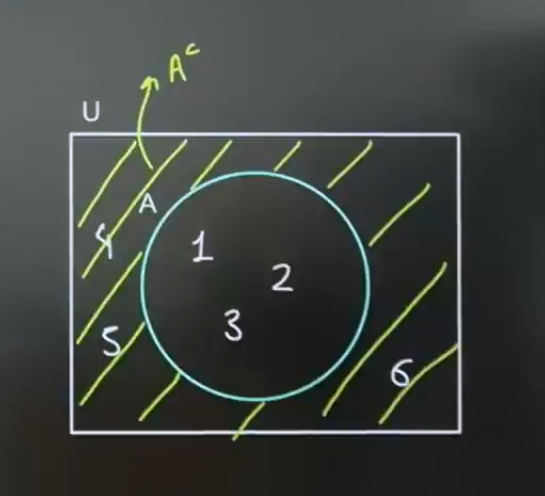 Aᶜ
U
A
4
1
2
3
5
6